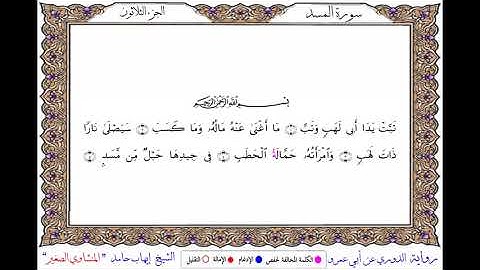 سورة المسد
الجزء الثلاثون
بسم الله الرحمن الرحيم
تَبَّتْ يَدَا أَبِي لَهَبٍ وَتَبَّ ۝١ مَا أَغْنَىٰ عَنْهُ مَالُهُۥ وَمَا كَسَبَ ۝٢ سَيَصْلَىٰ نَارًا
ذَاتَ لَهَبٍ ۝٣ وَٱمْرَأَتُهُۥ حَمَّالَةُ ٱلْحَطَبِ ۝٤ فِي جِيدِهَا حَبْلٌ مِّن مَّسَدٍ ۝٥
رواية الدوري عن أبي عمرو
الكلمة المخالفة لحفص
الإدغام
الإمالة
التقليل
الشيخ إيهاب حامد "المنشاوي الصغير"